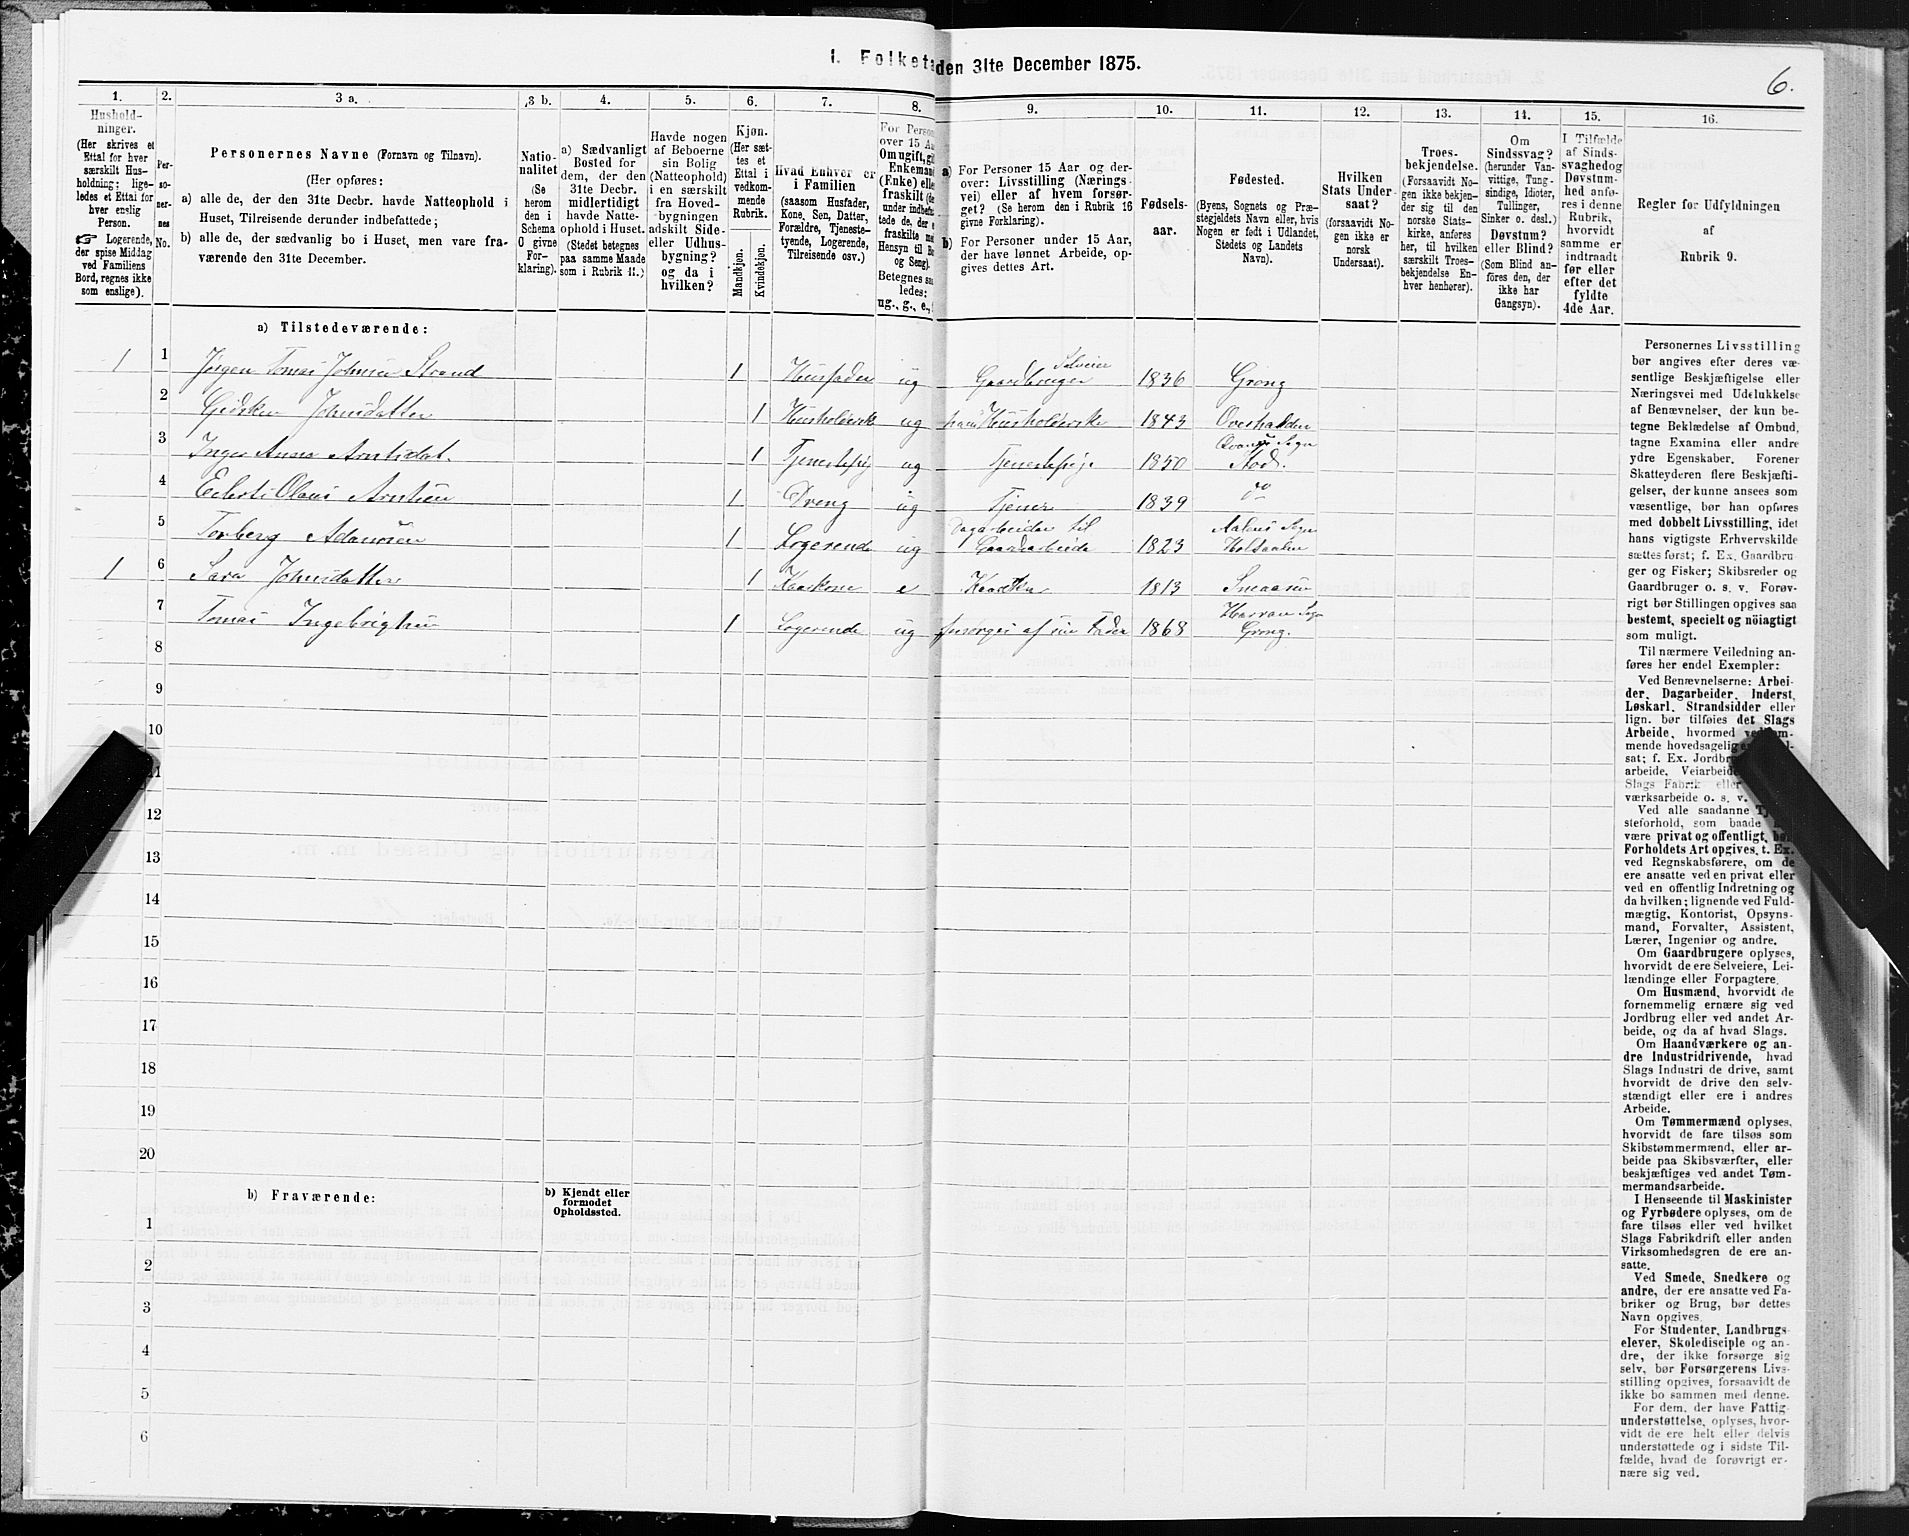 1. Folketæ
den 31te December 1875.
6.
1.
Hushold-
ninger.
(Her skrives et
Ettal for hver
særskilt Hus-
holdning; lige-
ledes et Ettal for
hver enslig
Person.
☞ Logerende,
der spise Middag
ved Familiens
Bord, regnes ikke
som enslige).
2.
Per-
so-
ner-
nes
No.
3 a.
Personernes Navne (Fornavn og Tilnavn).
(Her opføres:
a) alle de, der den 31te Decbr. havde Natteophold i
Huset, Tilreisende derunder indbefattede;
b) alle de, der sædvanlig bo i Huset, men vare fra-
værende den 31te December.
3 b.
Natio-
nalitet
(Se
herom
den i
Schema
O givne
For-
klaring).
4.
a) Sædvanligt
Bosted for
dem, der den
31te Decbr.
midlertidigt
havde Natte-
ophold i Huset.
(Stedet betegnes
paa samme Maade
som i Rubrik 11.)
5.
Havde nogen
af Beboerne
sin Bolig
(Natteophold)
i en særskilt
fra Hoved-
bygningen
adskilt Side-
eller Udhus-
bygning?
og da i
hvilken?
6.
Kjøn.
(Her sæt-
tes et
Ettal i
vedkom-
mende
Rubrik.
Mandkjøn.
Kvindekjøn.
7.
Hvad Enhver er
i Familien
(saasom Husfader,
Kone, Søn, Datter,
Forældre, Tjeneste-
tyende, Logerende,
Tilreisende osv.)
8.
For Person
over 15 Aa
Om ugift, gif
Enkemand
(Enke) elle
fraskilt (de
under indbefat-
tede de, der e
fraskilte me
Hensyn til Bo
og Seng).
Betegnes saa
ledes:
ug., g., e.,
9.
a) For Personer 15 Aar og der-
over: Livsstilling (Nærings-
vei) eller af hvem forsør-
get? (Se herom den i Rubrik 16
givne Forklaring).
b) For Personer under 15 Aar,
der have lønnet Arbeide, op-
gives dettes Art.
10.
Fødsels-
aar.
11.
Fødested.
(Byens, Sognets og Præ-
stegjeldets Navn eller, hvis
Nogen er født i Udlandet,
Stedets og Landets
Navn).
12.
Hvilken
Stats Under-
saat?
(forsaavidt No-
gen ikke er
norsk
Undersaat).
13.
Troes-
bekjendelse.
(Forsaavidt No-
gen ikke bekjen-
der sig til den
norske Stats-
kirke, anføres
her, til hvilken
særskilt Troes-
bekjendelse En-
hver henhører).
14.
Om
Sindssvag?
(herunder Van-
vittige, Tung-
sindige, Idioter,
Tullinger,
Sinker o. desl.)
Døvstum?
eller Blind?
(Som Blind an-
føres den, der
ikke har
Gangsyn).
15.
I Tilfælde
af Sinds-
svaghed og
Døvstum-
hed anfø-
res i denne
Rubrik,
hvorvidt
samme er
indtraadt
før eller
efter det
fyldte
4de Aar.
16.
Regler for Udfyldningen
af
Rubrik 9.
a) Tilstedeværende:
1 1 Jørgen Tomas Johnsen Strand 1 Husfader ug Gaardbruger Selveier 1836 Grong
2 Gidsken Johnsdatter 1 Husholderske ug hans Husholderske 1843 Overhalden
3 Inger Anna Arntsdat. 1 Tjenestepig ug Tjenestepige 1850 Qvams Sogn Stod.
4 Olaus Arntsen 1 Dreng ug Tjener 1839 do
5 Torberg Adamsen 1 Logerende ug Dagarbeider til Gaardsarbeide 1823 Aalens Sogn Holtaalen
1 6 Sara Johnsdatter 1 e 1813 Snaasen
7 Tomas Ingebrigtsen 1 Logerende ug forsørges af sin Fader 1868 Harran Sogn Grong.
8
9
10
11
12
13
14
15
16
17
18
19
20
b) Fraværende:
b) Kjendt eller
formodet
Opholdssted.
1
2
3
4
5
6
Personernes Livsstilling
bør angives efter deres væ-
sentlige Beskjæftigelse eller
Næringsvei med Udelukkelse
af Benævnelser, der kun be-
tegne Beklædelse af Ombud,
tagne Examina eller andre
ydre Egenskaber. Forener
Skatteyderen flere Beskjæfti-
gelser, der kunne ansees som
væsentlige, bør han opføres
med dobbelt Livsstilling, idet
hans vigtigste Erhvervskilde
sættes først; f. Ex. Gaardbru-
ger og Fisker; Skibsreder og
Gaardbruger o. s. v. Forøv-
rigt bør Stillingen opgives saa
bestemt, specielt og nöiagtigt
som muligt.
Til nærmere Veiledning an-
føres her endel Exempler:
Ved Benævnelserne: Arbei-
der, Dagarbeider, Inderst,
Løskarl, Strandsidder eller
lign. bør tilføies det Slags
Arbeide, hvormed
mende hovedsagelig
sat; f. Ex. Jordbr
arbeide, Veiarbeide
Slags Fabrik eller
værksarbeide o. s. v.
Ved alle saadanne
steforhold, som baade
være privat og offentligt, bør
Forholdets Art opgives, t. Ex.
ved Regnskabsførere, om de
ere ansatte ved en privat eller
ved en offentlig Indretning og
da hvilken; lignende ved Fuld-
mægtig, Kontorist, Opsyns-
mand, Forvalter, Assistent,
Lærer, Ingeniør og andre.
Om Gaardbrugere oplyses,
hvorvidt de ere Selveiere, Lei-
lændinge eller Forpagtere.
Om Husmænd, hvorvidt de
fornemmelig ernære sig ved
Jordbrug eller ved andet Ar-
beide, og da af hvad Slags.
Om Haandværkere og an-
dre Industridrivende, hvad
Slags Industri de drive, samt
hvorvidt de drive den selv-
stændigt eller ere i andres
Arbeide.
Om Tømmermænd oplyses,
hvorvidt de fare tilsøs som
Skibstømmermænd, eller ar-
beide paa Skibsværfter, eller
beskjæftiges ved andet Tøm-
mermandsarbeide.
I Henseende til Maskinister
og Fyrbødere oplyses, om de
fare tilsøs eller ved hvilket
Slags Fabrikdrift eller anden
Virksomhedsgren de ere an-
satte.
Ved Smede, Snedkere og
andre, der ere ansatte ved Fa-
briker og Brug, bør dettes
Navn opgives.
For Studenter, Landbrugs-
elever, Skoledisciple og an-
dre, der ikke forsørge sig
selv, bør Forsørgerens Livs-
stilling opgives, forsaavidt de
ikke bo sammen med denne.
For dem, der have Fattig-
understøttelse, oplyses, hvor-
vidt de ere helt eller delvis
understøttede og i sidste Til-
fælde, hvad de forøvrigt er-
nære sig ved.